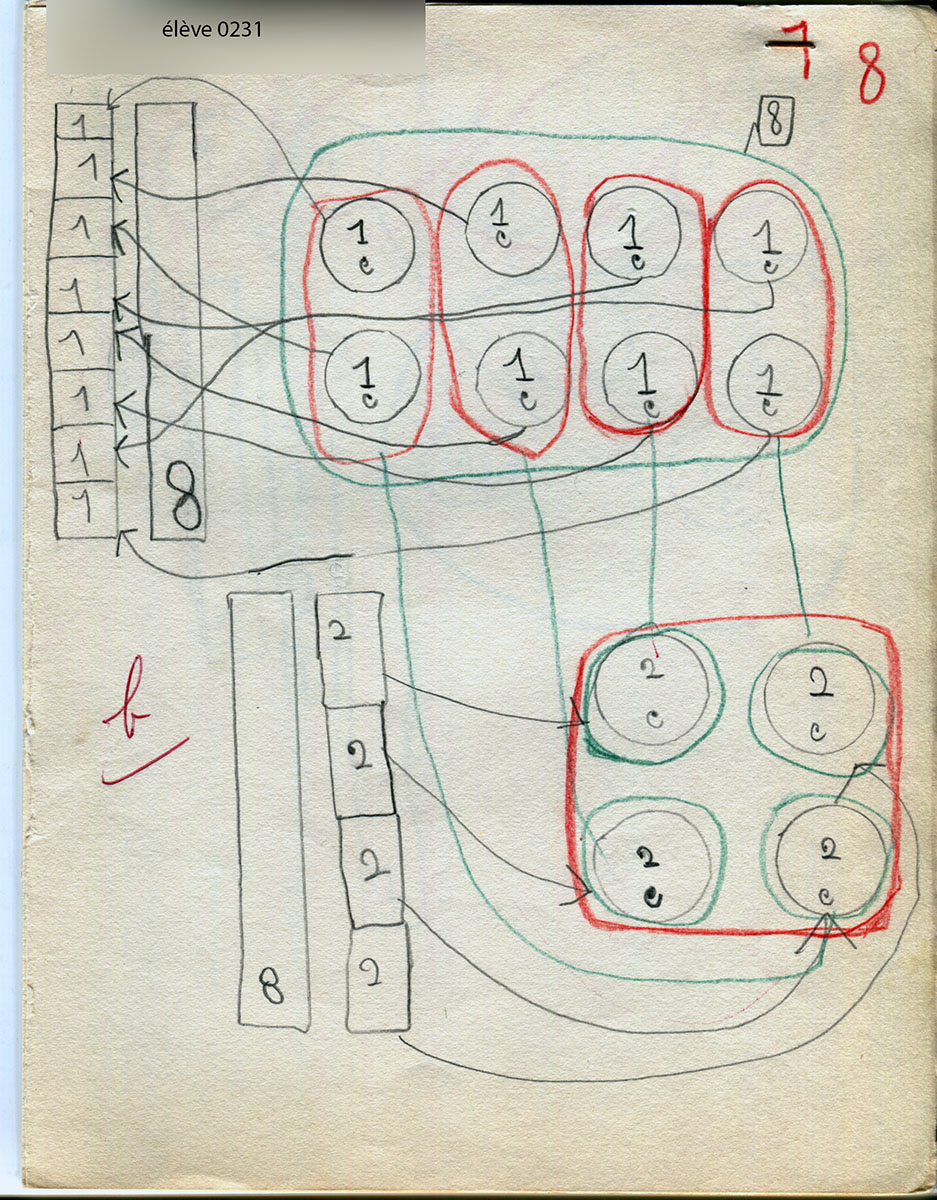 élève 0231
7 8
8
1 1 c 1 c 1 c 1 c
1
1
1
1 1 c 1 c 1 c 1 c
1
1
1 8
2 2 c 2 c
2
2 2 c 2 c
8 2
b